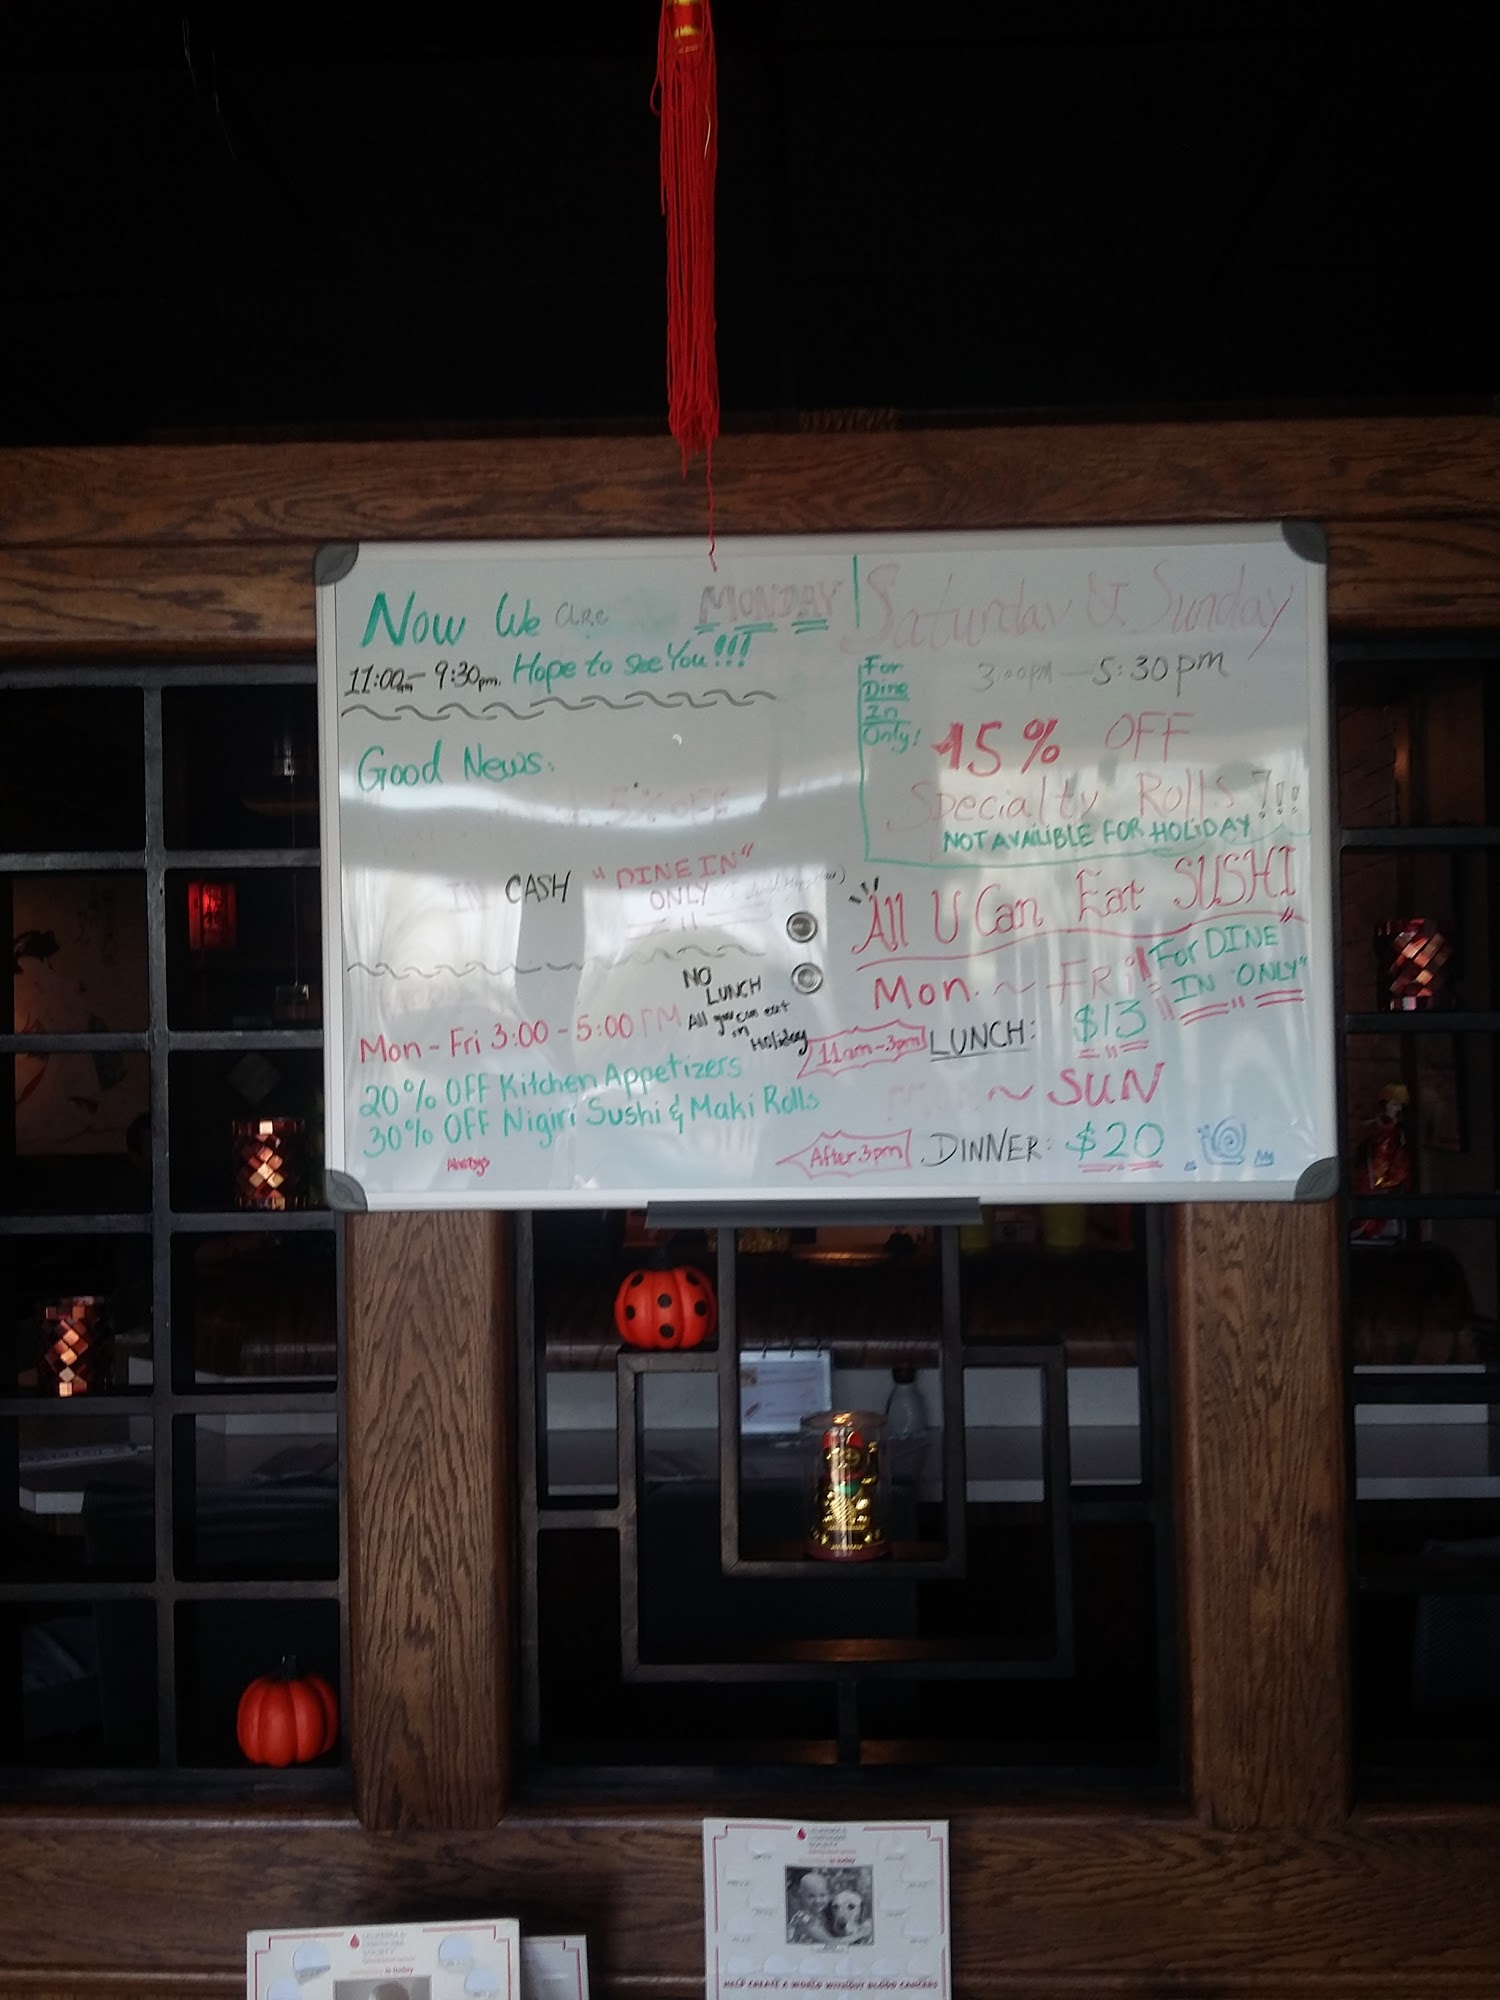 Now We are
MONDAY
11:00am - 9:30pm. Hope to see You!!!
Good News:
5% OFF
IN CASH "DINE IN"
ONLY
NO
LUNCH
All you can eat
in
Holiday
Mon - Fri 3:00 - 5:00 PM
20% OFF Kitchen Appetizers
30% OFF Nigiri Sushi & Maki Rolls
Saturday & Sunday
For
Dine
In
Only!
3:00pm - 5:30pm
15% OFF
Specialty Rolls!!!!
NOT AVAILIBLE FOR HOLIDAY
All U Can Eat SUSHI
Mon. ~ FRi
"For DINE
IN ONLY"
11am-3pm LUNCH: $13
~ SUN
After 3pm DINNER: $20
is today
HELP CREATE A WORLD WITHOUT BLOOD CANCERS
is today